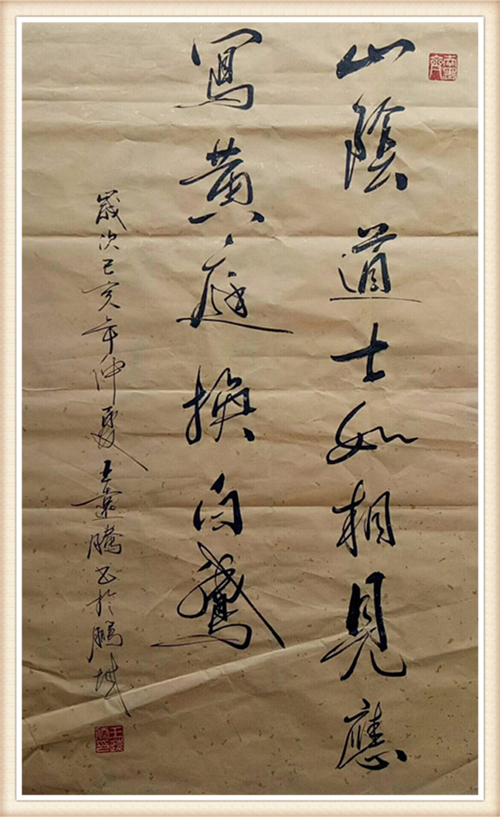 山陰道士如相見應
寫黄庭換白鵝
歲次己亥年仲夏王騰书於鵬城